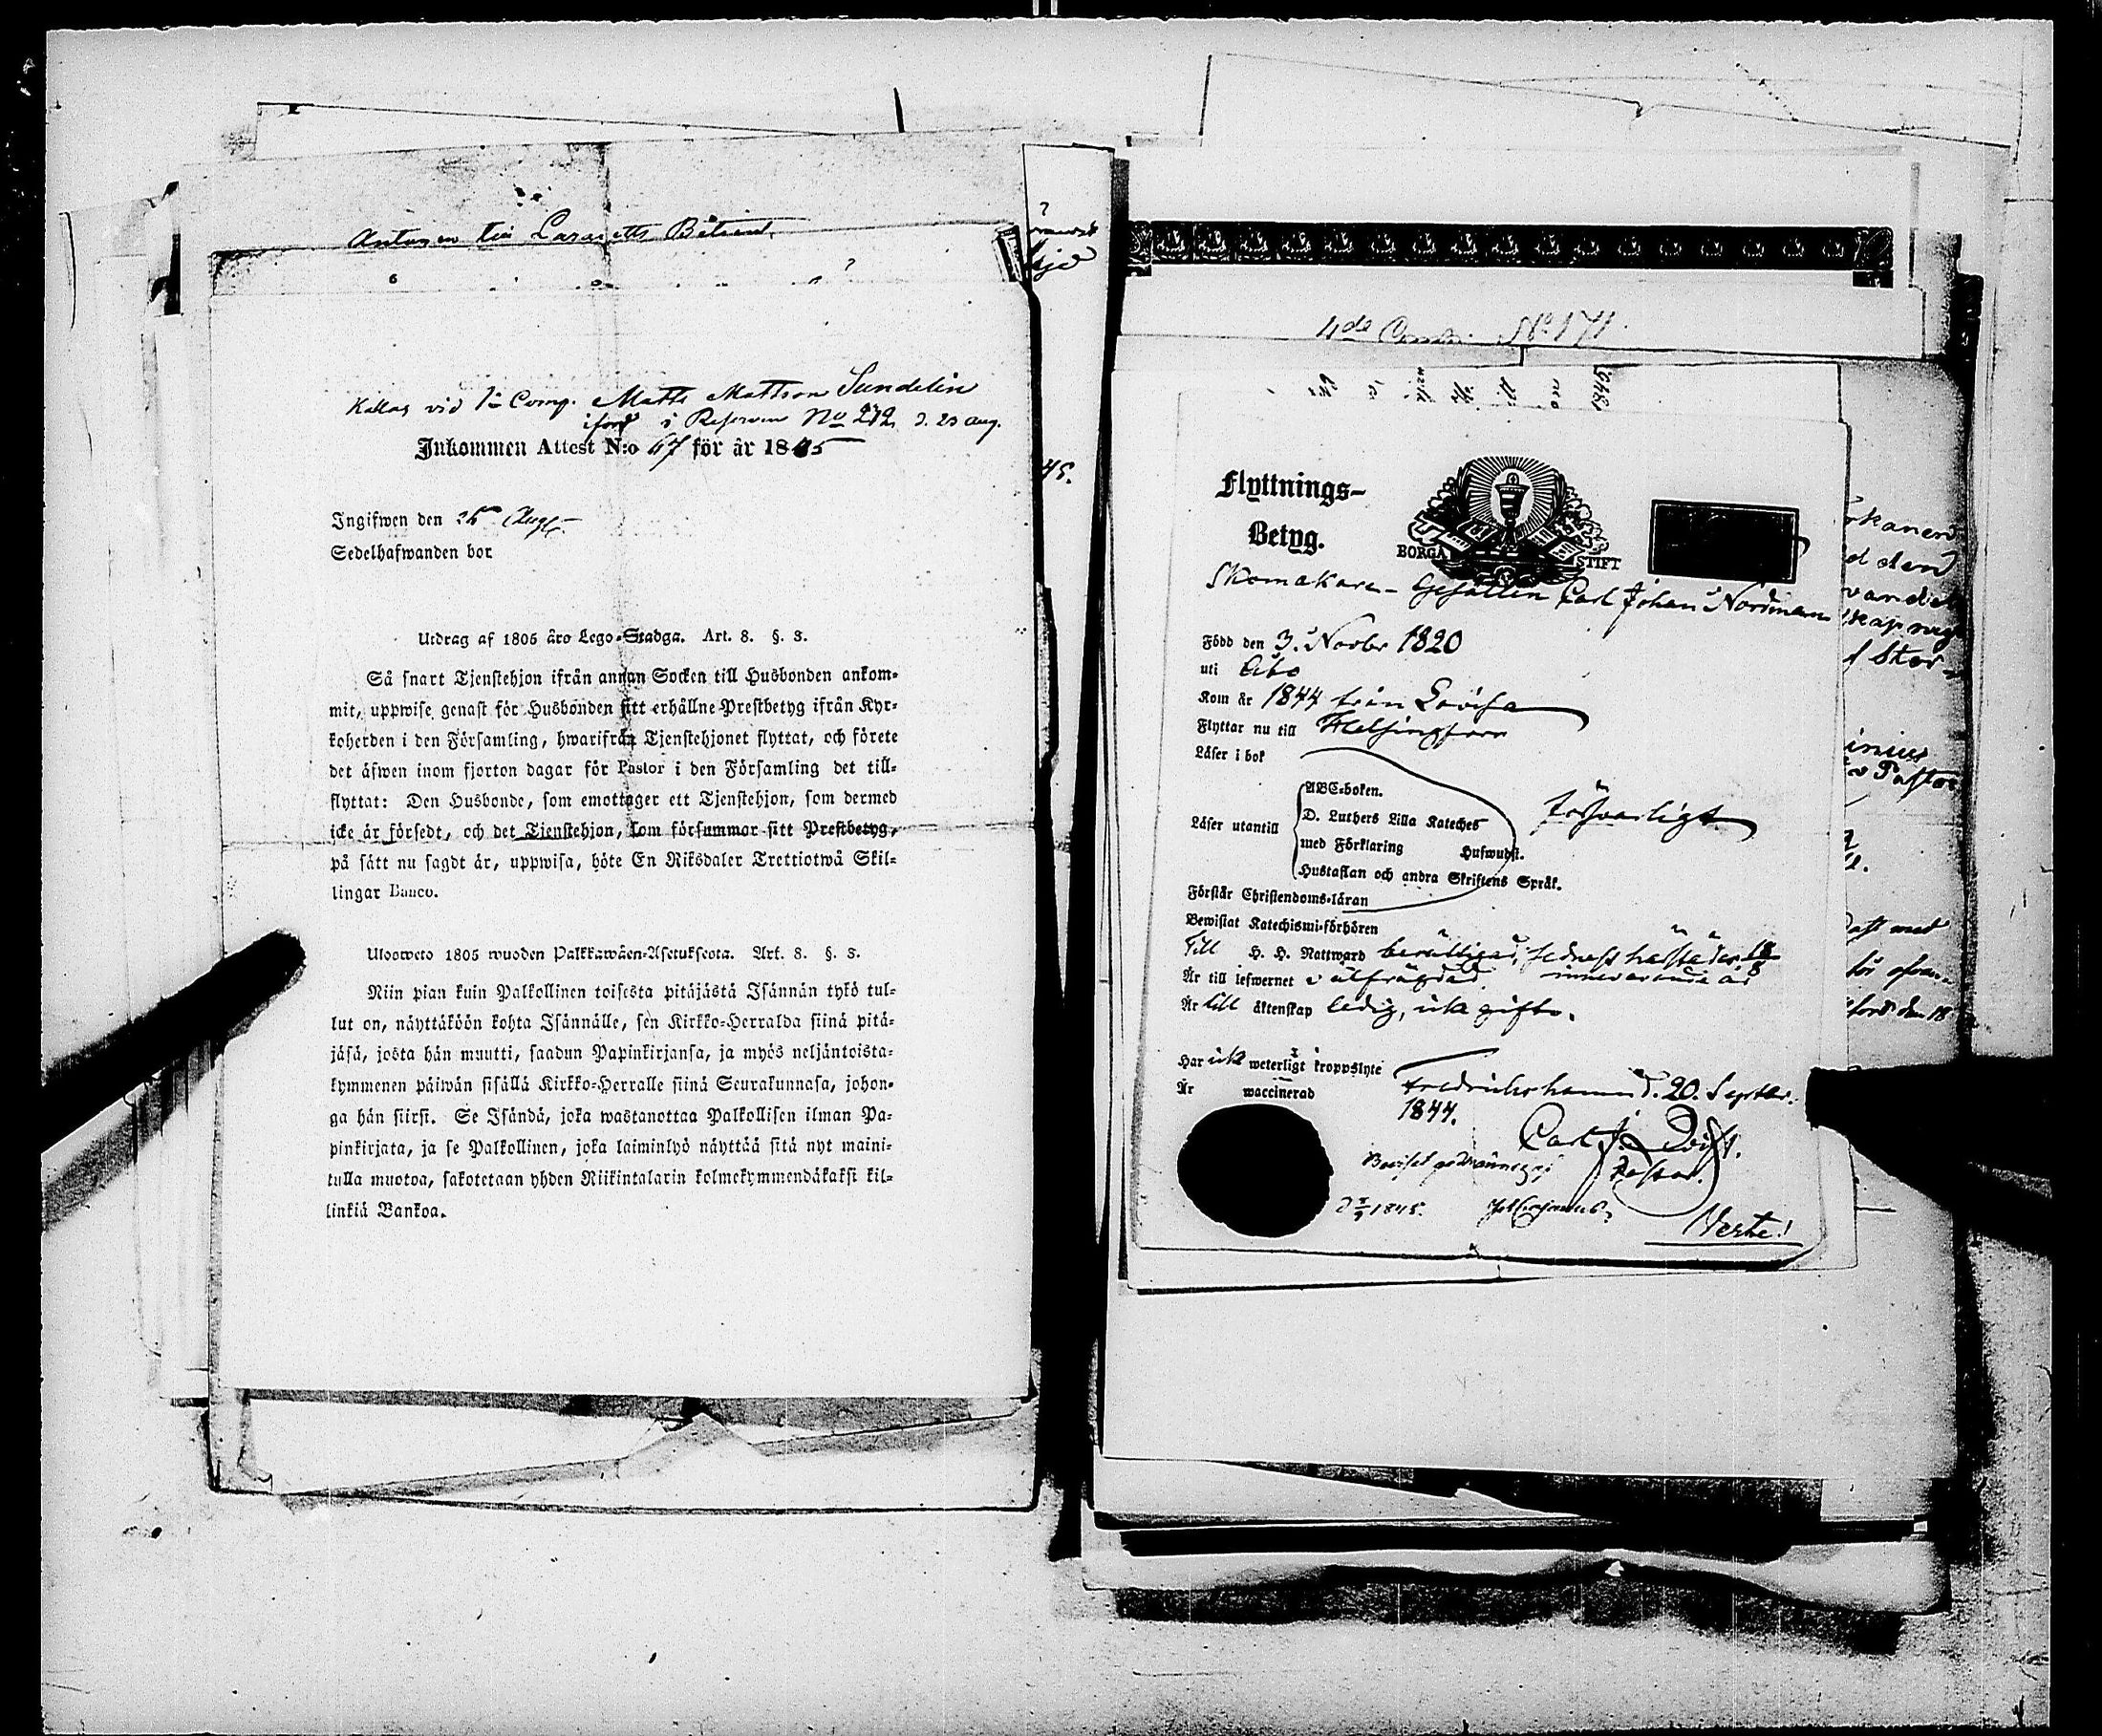 Antagen till Lazaretts Betjent
Kallas vid 1a Comp. Matts Mattson Sundelin
i Reserven No 272 d. 23 aug.
Inkommen Attest N:o 67 för år 1845
Ingifwen den 25 Aug.
Sedelhafwanden bor
Utdrag af 1805 åro Lego-Stadga. Art. 8. §. 3.
Så snart Tjenstehjon ifrån annan Socken till Husbonden ankom-
mit, uppwise genast för Husbonden sitt erhållne Prestbetyg ifrån Kyr-
koherden i den Församling, hwarifrån Tjenstehjonet flyttat, och förete
det äfwen inom fjorton dagar för Pastor i den Församling det till-
flyttat: Den Husbonde, som emottager ett Tjenstehjon, som dermed
icke är försedt, och det Tjenstehjon, som försummar sitt Prestbetyg,
på sätt nu sagdt är, uppwisa, böte En Riksdaler Trettiotwå Skil-
lingar Banco.
Ulooweto 1805 wuoden Palkkawäen-Asetuksesta. Art. 8. §. 3.
Niin pian kuin Palkollinen toisesta pitäjästä Isännän tykö tul-
lut on, näyttäköön kohta Isännälle, sen Kirkko-Herralda siinä pitä-
jäsä, josta hän muutti, saadun Papinkirjansa, ja myös neljäntoista-
kymmenen päiwän sisällä Kirkko-Herralle siinä Seurakunnasa, johon-
ga hän siirsi. Se Isändä, joka wastanottaa Palkollisen ilman Pa-
pinkirjata, ja se Palkollinen, joka laiminlyö näyttää sitä nyt maini-
tulla muotoa, sakotetaan yhden Riikintalarin kolmekymmendäkaksi kil-
linkiä Bankoa.
45.
4de Comp. No 171.
Flyttnings-
Betyg.
BORGÅ STIFT
Skomakare-Gesällen Carl Johan Nordman
Född den 3. Novbr 1820
uti Åbo
Kom år 1844 från Lovisa
Flyttar nu till Helsingfors
Läser i bok
ABC-boken.
Läser utantill D. Luthers Lilla Kateches försvarligt
med Förklaring Hufwudst.
Hustaflan och andra Skriftens Språk.
Förstår Christendoms-läran
Bewistat Katechismi-förhören
Till H. H. Nattward berättigad, sednast härstädes
Är till lefwernet oälfrägdad innevarande år
Är till äktenskap ledig, icke gift.
Har icke weterligt kroppslyte
Är waccinerad
Fredrichshamn d. 20. Septbr.
1844.
Carl J.
Pastor.
1845.
Verte!